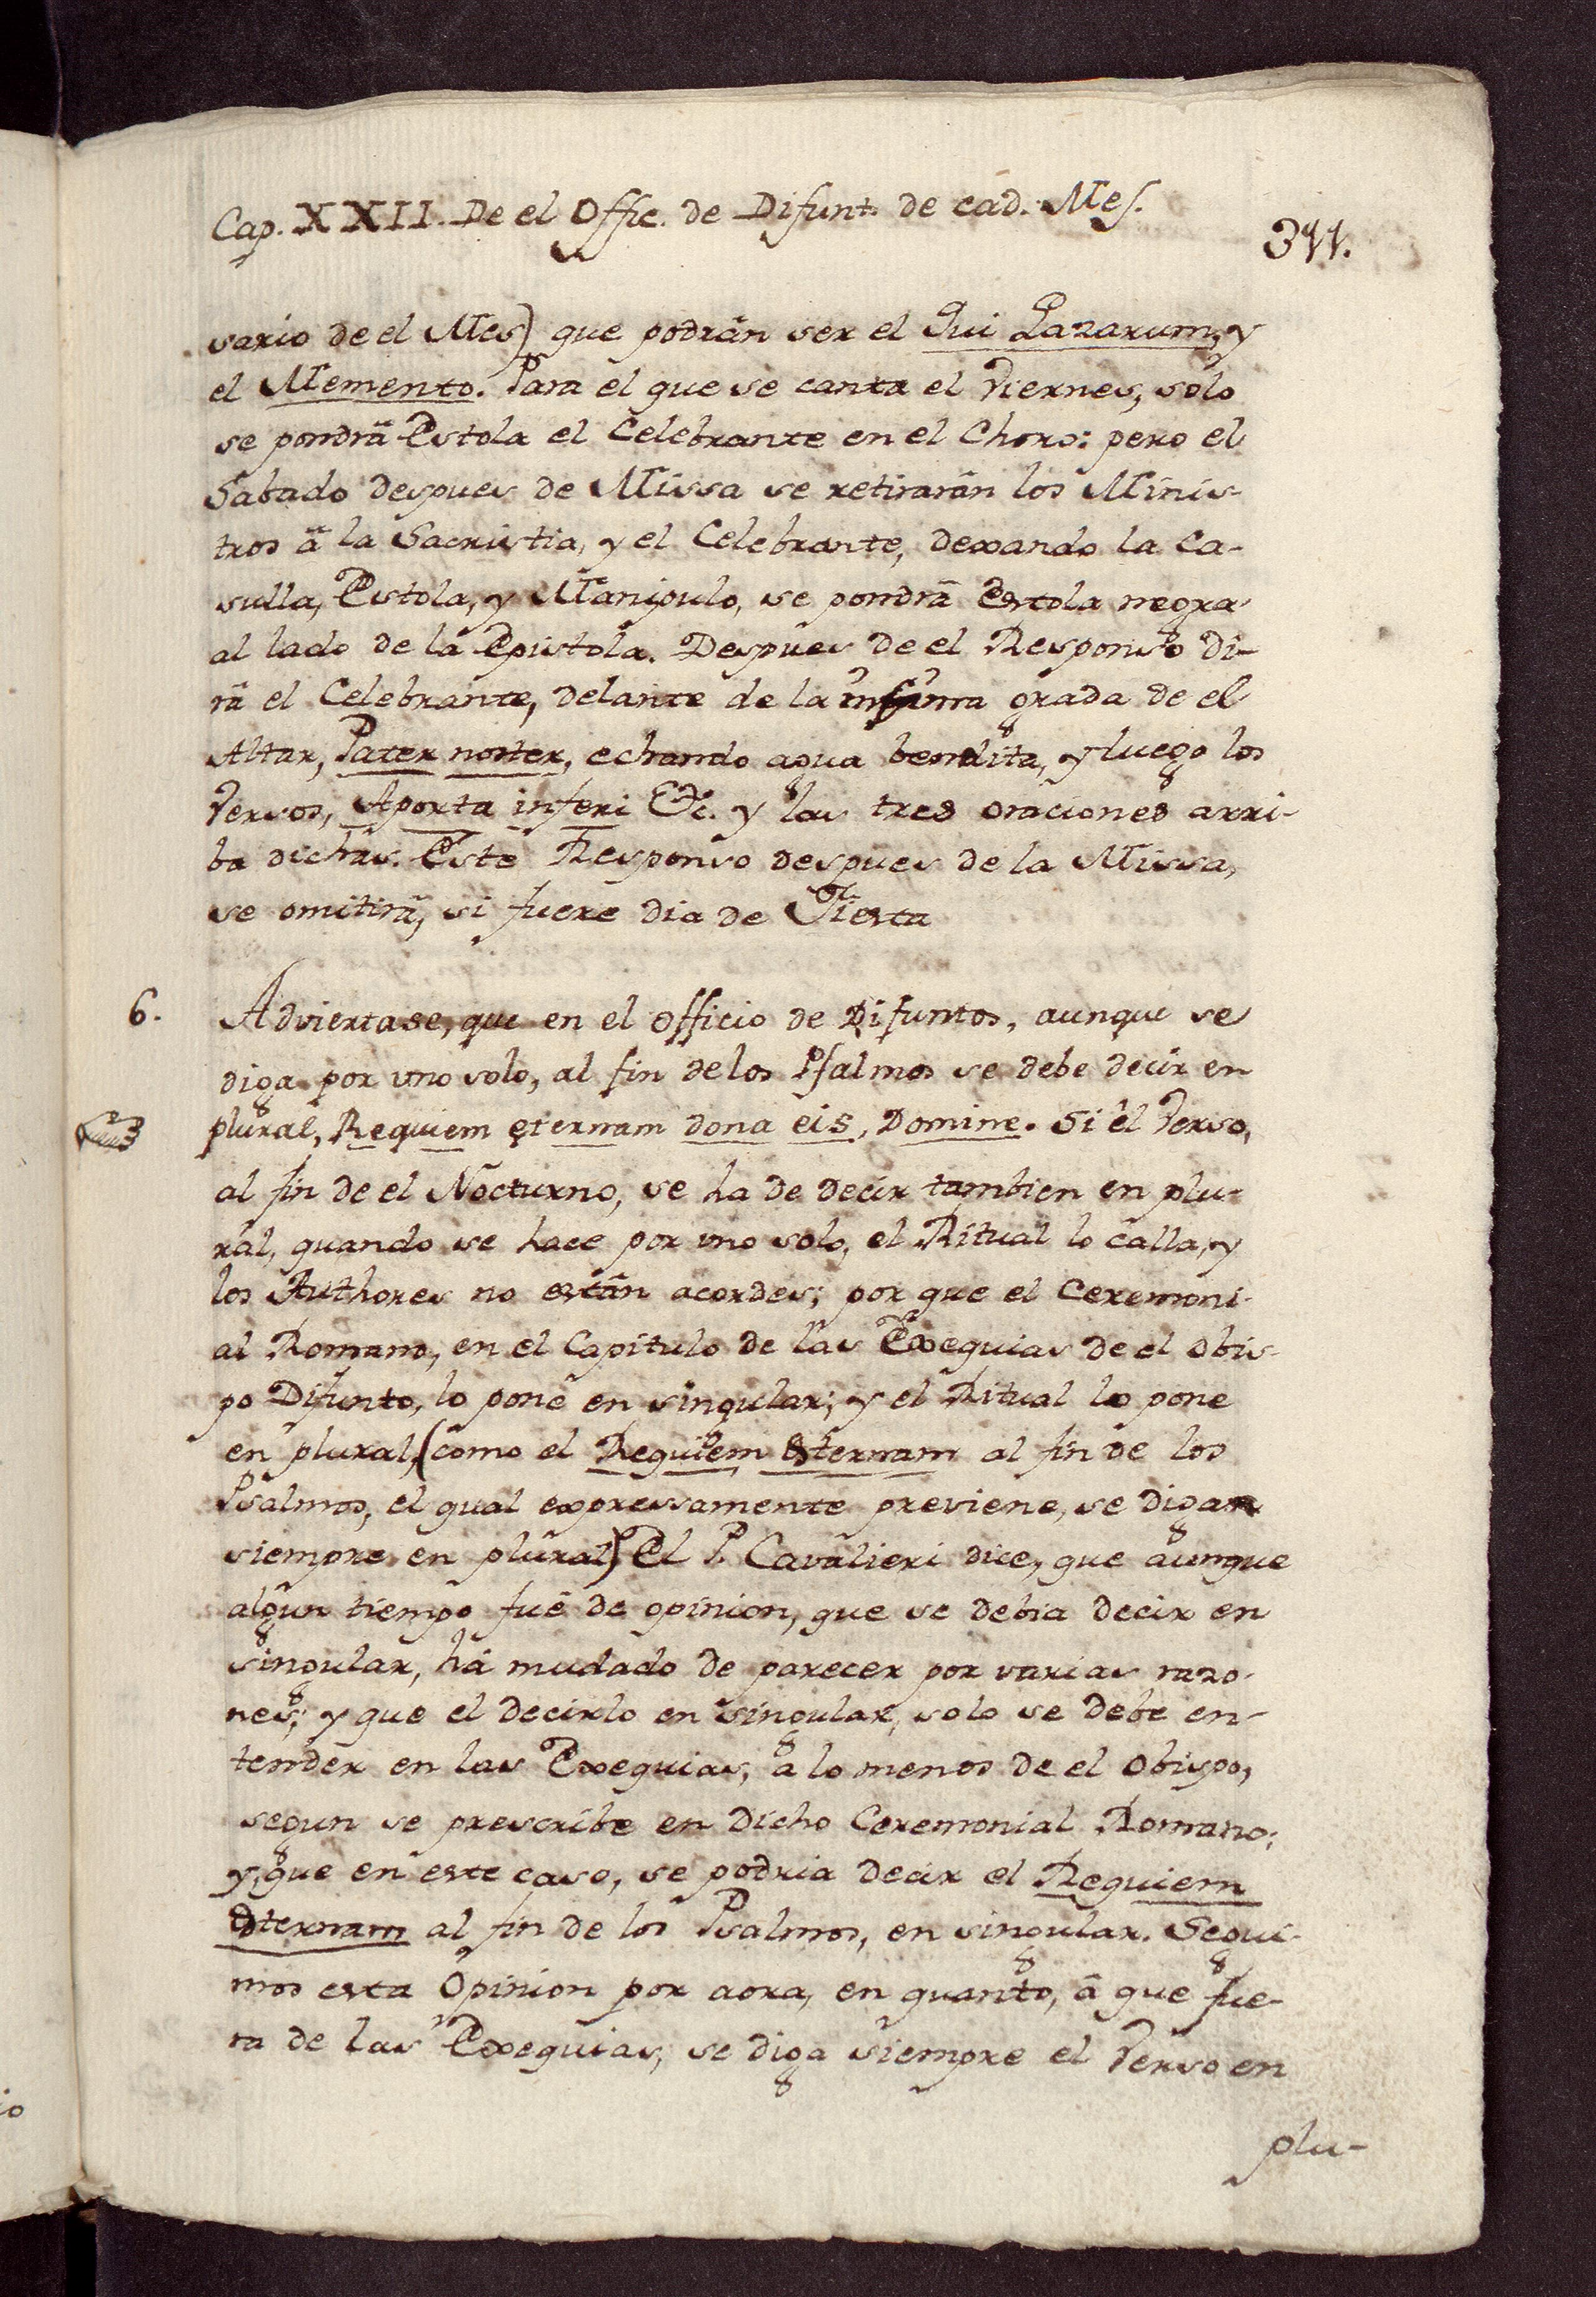 Cap. XXII. De el Offic. de Difunt. de cad. Mes.
311.
sario de el Mes) que podrân ser el Qui Lazarum, y
el Memento. Para el que se canta el Viernes, solo
se pondrâ Estola el Celebrante en el Choro: pero el
Sabado despues de Missa se retirarân los Minis-
tros â la Sacristia, y el Celebrante, dexando la Ca-
sulla, Estola, y Manipulo, se pondrâ Estola negra
al lado de la Epistola. Despues de el Responso di-
râ el Celebrante, delante de la infima grada de el
Altar, Pater noster, echando agua bendita, y luego los
Versos, Aporta inferi &c. y las tres oraciones arri-
ba dichas. Este Responso despues de la Missa,
se omitirâ, si fuere dia de Fiesta
6. Adviertase, que en el Officio de Difuntos, aunque se
diga por uno solo, al fin de los Psalmos se debe decir en
plural, Requiem ęternam dona eis, Domine. Si el Verso,
al fin de el Nocturno, se ha de decir tambien en plu-
ral, quando se hace por uno solo, el Ritual lo calla, y
los Authores no estân acordes; por que el Ceremoni-
al Romano, en el Capitulo de las Exequias de el Obis-
po Difunto, lo pone en singular; y el Ritual lo pone
en plural, (como el Requiem Eternam al fin de los
Psalmos, el qual expressamente previene, se digan
siempre en plural) El P. Cavalieri dice, que aunque
algun tiempo fuê de opinion, que se debia decir en
singular, há mudado de parecer por varias razo-
nes; y que el decirlo en singular, solo se debe en-
tender en las Exequias, â lo menos de el Obispo,
segun se prescribe en dicho Ceremonial Romano;
y, que en este caso, se podria decir el Requiem
Eternam al fin de los Psalmos, en singular. Segui-
mos esta Opinion por aora, en quanto, â que fue-
ra de las Exequias, se diga siempre el Verso en
plu-